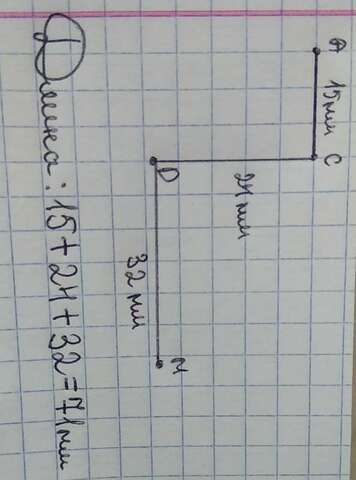 A
15мм
C
24 мм
D
32 мм
M
Длина: 15 + 24 + 32 = 71мм